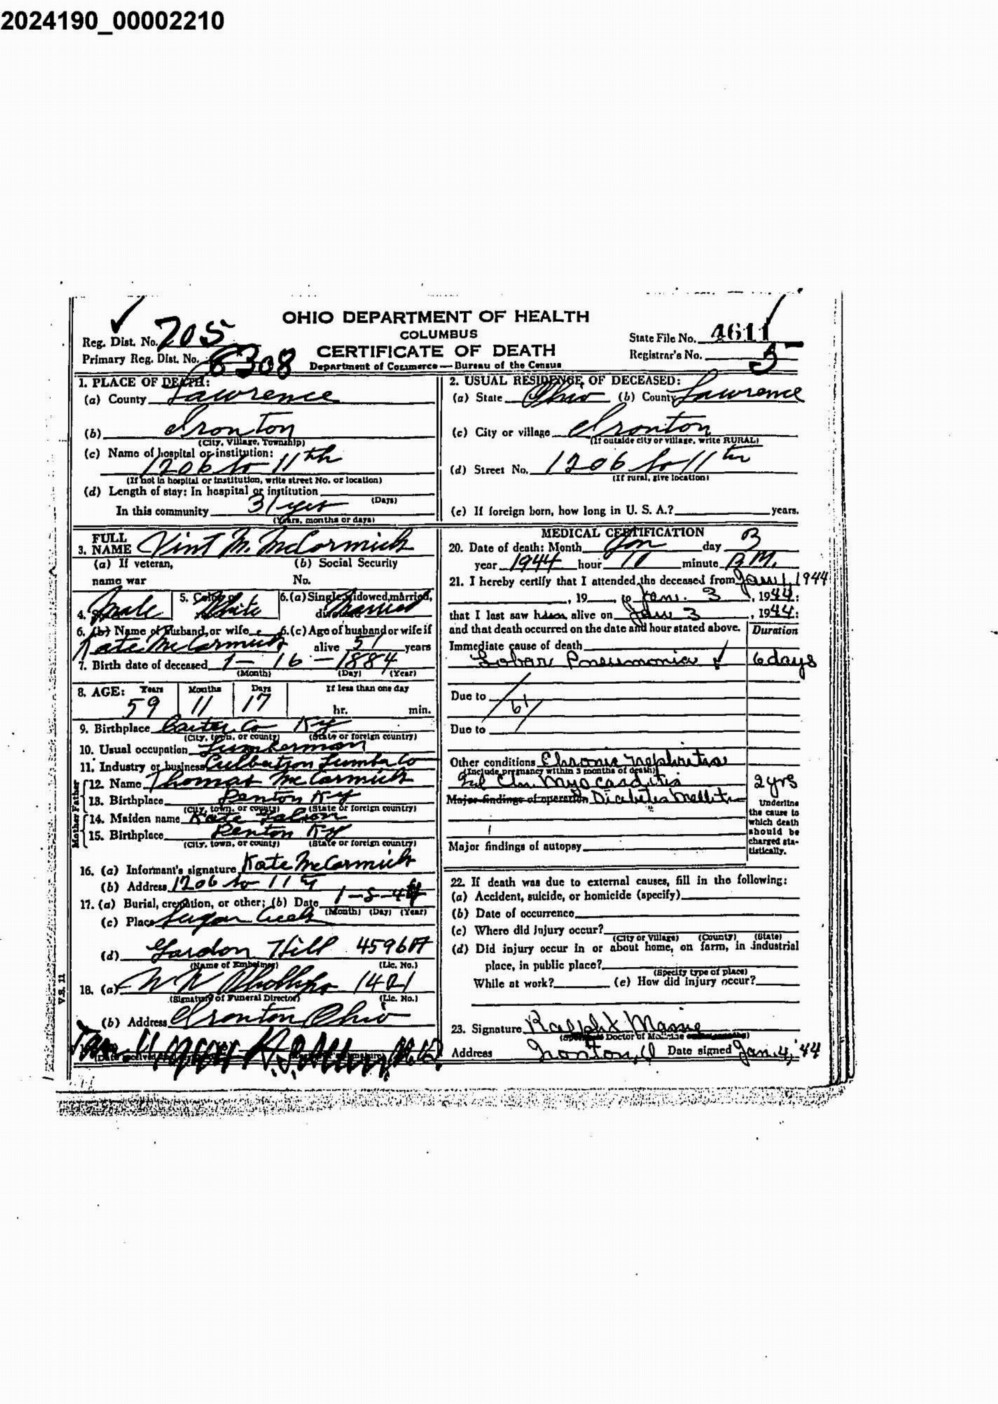 2024190_00002210
OHIO DEPARTMENT OF HEALTH
COLUMBUS
CERTIFICATE OF DEATH
Department of Commerce — Bureau of the Census
Reg. Dist. No. 705
Primary Reg. Dist. No. 6308
State File No. 4611
Registrar's No. 5
1. PLACE OF DEATH:
(a) County Lawrence
(b) Ironton
(City, Village, Township)
(c) Name of hospital or institution:
1206 So 11th
(If not in hospital or institution, write street No. or location)
(d) Length of stay: In hospital or institution
(Days)
In this community 31 yrs
(Years, months or days)
2. USUAL RESIDENCE OF DECEASED:
(a) State Ohio (b) County Lawrence
(c) City or village Ironton
(If outside city or village, write RURAL)
(d) Street No. 1206 So 11th
(If rural, give location)
(e) If foreign born, how long in U. S. A.? years.
3. FULL NAME Vint M. McCormick
(a) If veteran, name war
(b) Social Security No.
4. Sex Male 5. Color or White 6. (a) Single, widowed, married, divorced Married
6. (b) Name of husband, or wife Kate McCormick 6. (c) Age of husband or wife if alive 51 years
7. Birth date of deceased 1-16-1884
(Month) (Day) (Year)
8. AGE: Years 59 Months 11 Days 17 If less than one day hr. min.
9. Birthplace Carter Co Ky
(City, town, or county) (State or foreign country)
10. Usual occupation Lumberman
11. Industry or business Culbertson Lumber Co
Father
12. Name Thomas McCormick
13. Birthplace Denton Ky
(City, town, or county) (State or foreign country)
Mother
14. Maiden name Kate
15. Birthplace Denton Ky
(City, town, or county) (State or foreign country)
16. (a) Informant's signature Kate McCormick
(b) Address 1206 So 11th
17. (a) Burial, cremation, or other; (b) Date 1-5-44
(Month) (Day) (Year)
(c) Place Sugar Creek
(d) Gordon Hill 4596A
(Name of Embalmer) (Lic. No.)
18. (a) Phillips 1421
(Signature of Funeral Director) (Lic. No.)
(b) Address Ironton Ohio
V.S. 11
MEDICAL CERTIFICATION
20. Date of death: Month Jan day 3
year 1944 hour 11 minute P.M.
21. I hereby certify that I attended the deceased from Jan 1, 1944
, 19 to Jan. 3, 1944:
that I last saw him alive on Jan 3, 1944:
and that death occurred on the date and hour stated above. Duration
Immediate cause of death
Lobar Pneumonia 6 days
Due to
Due to
Other conditions Chronic Nephritis
(Include pregnancy within 3 months of death)
Myocarditis 2 yrs
Major findings of operation Diabetis Mellitus
Underline the cause to which death should be charged statistically.
Major findings of autopsy
22. If death was due to external causes, fill in the following:
(a) Accident, suicide, or homicide (specify)
(b) Date of occurrence
(c) Where did injury occur?
(City or Village) (County) (State)
(d) Did injury occur in or about home, on farm, in industrial
place, in public place?
(Specify type of place)
While at work? (e) How did injury occur?
23. Signature Ralph Massie
Doctor of Medicine
Address Ironton, O Date signed Jan. 4, '44